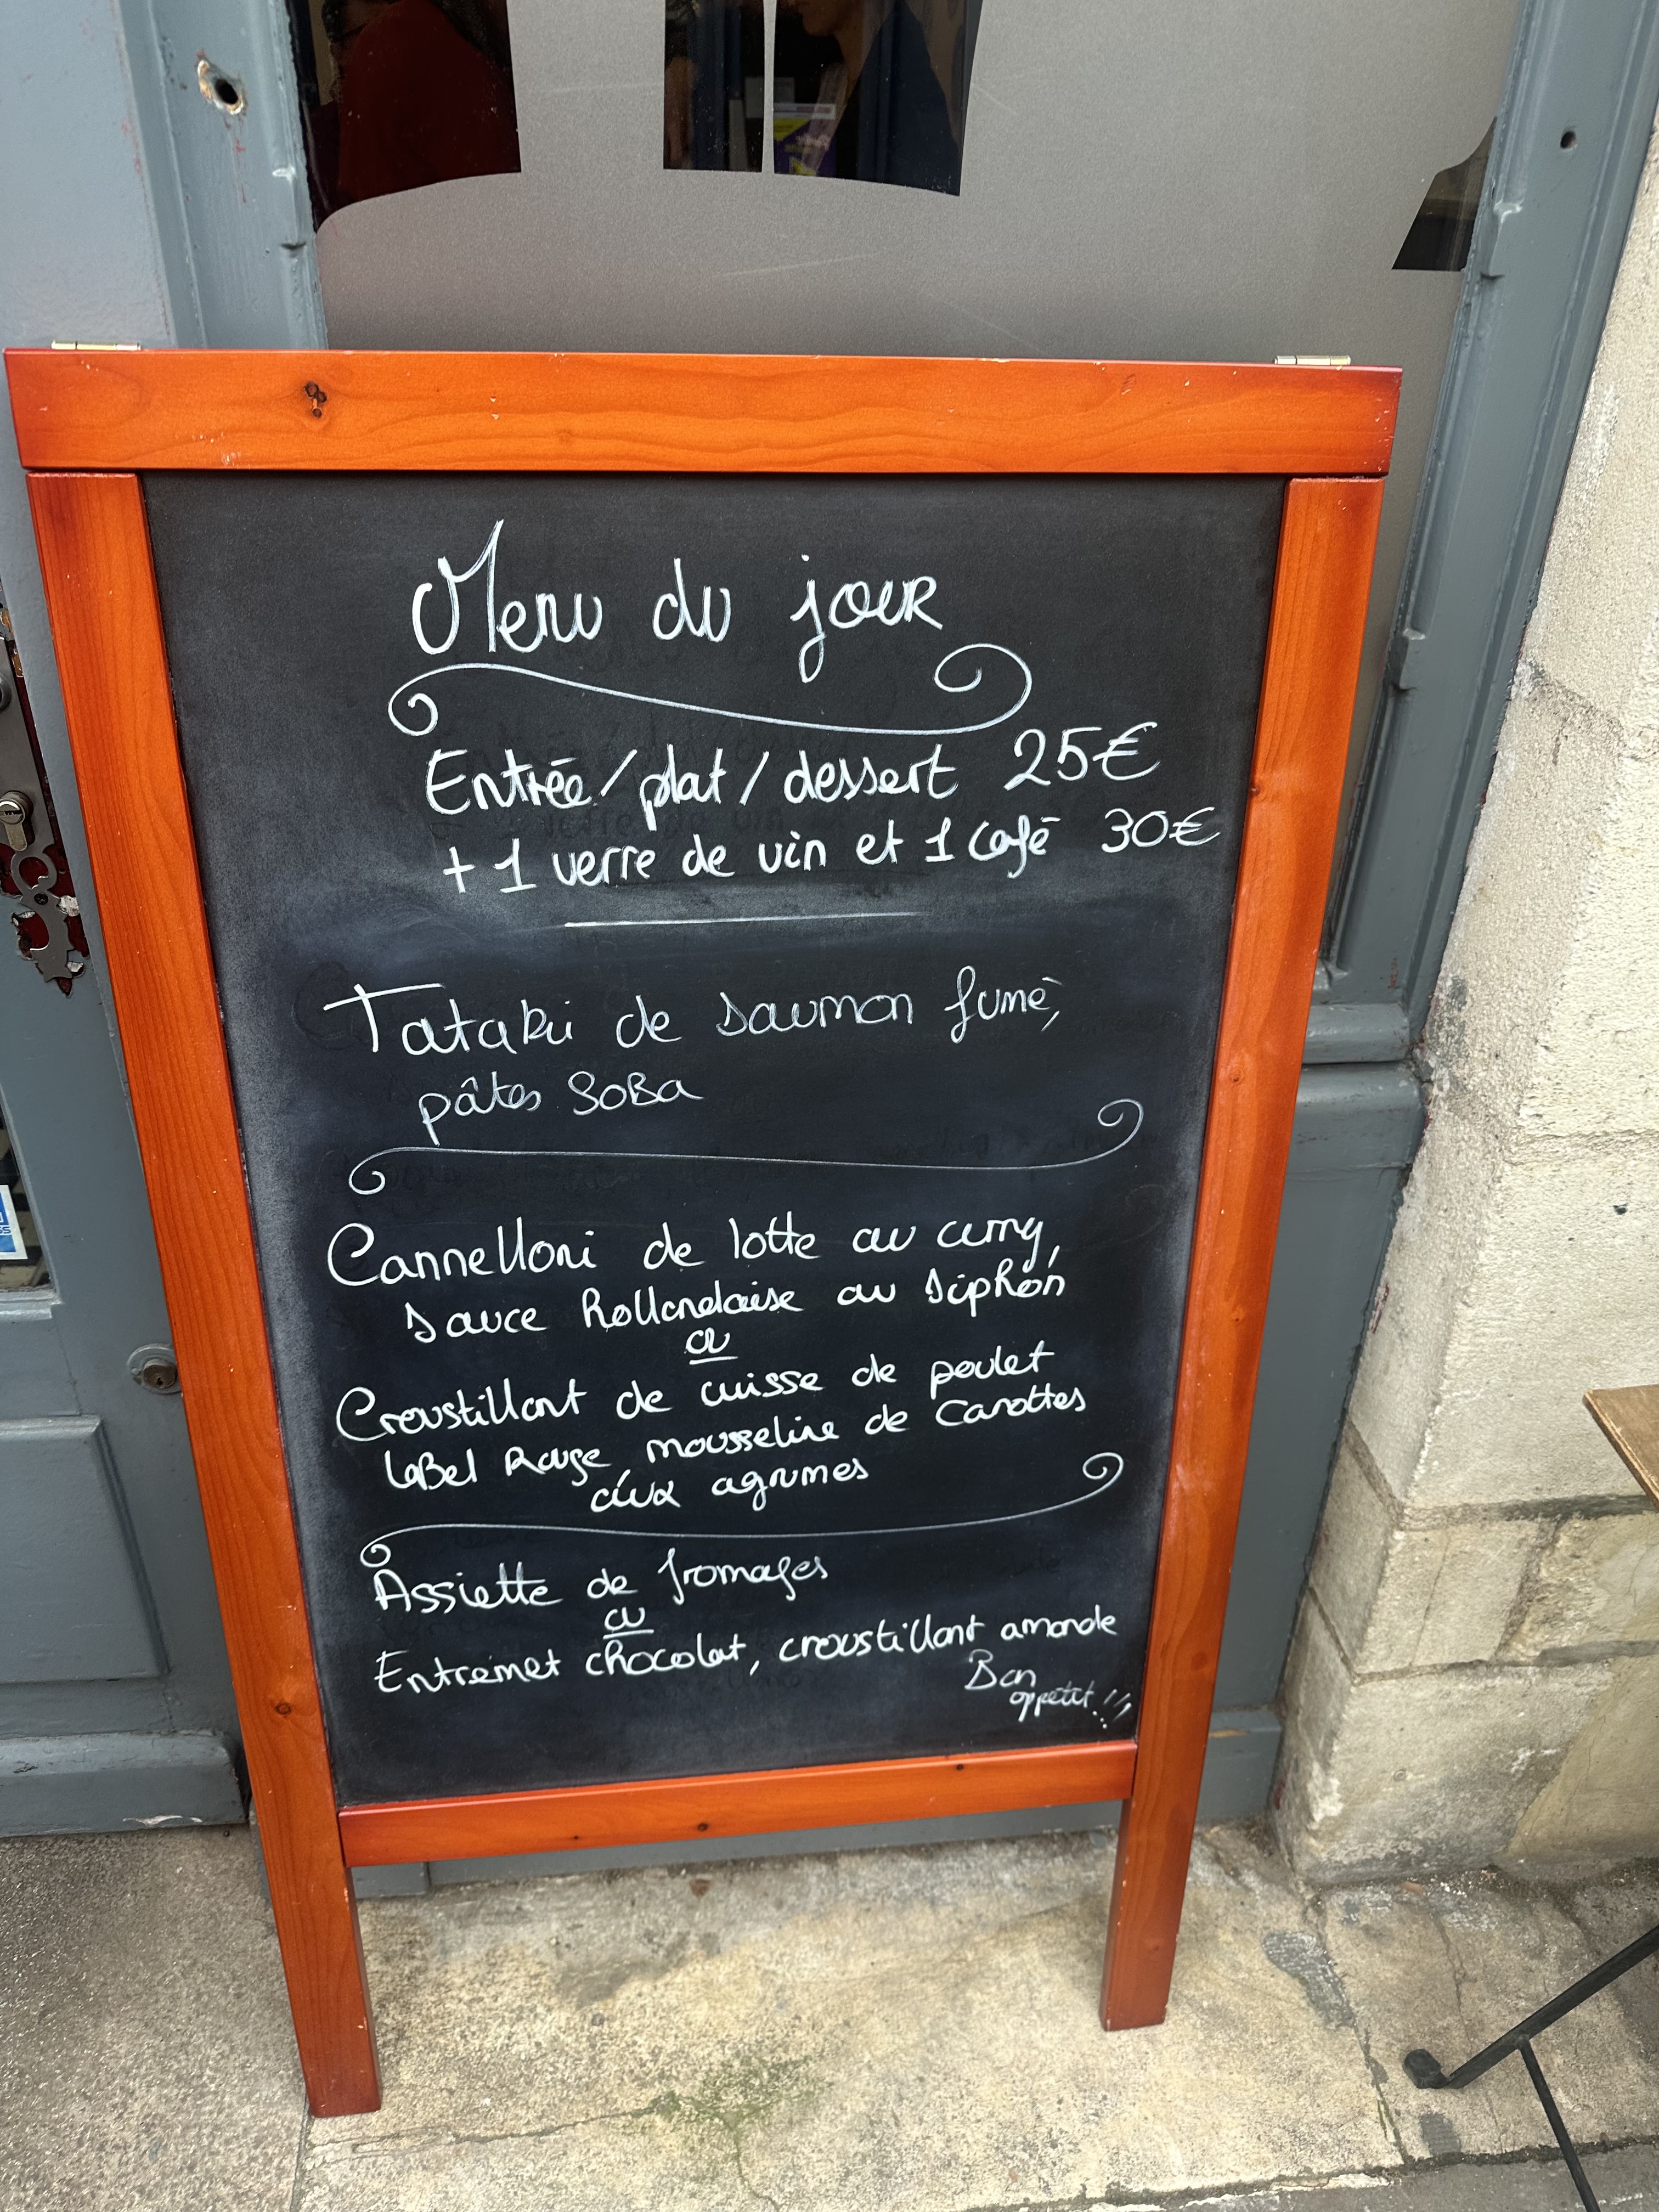 Menu du jour
Entrée/plat/dessert 25€
+ 1 verre de vin et 1 café 30€
Tataki de saumon fumé,
pâtes SOBA
Cannelloni de lotte au curry,
sauce hollandaise au siphon
ou
Croustillant de cuisse de poulet
laBel Rouge mousseline de carottes
aux agrumes
Assiette de fromages
ou
Entremet chocolat, croustillant amande
Bon
appétit!!!